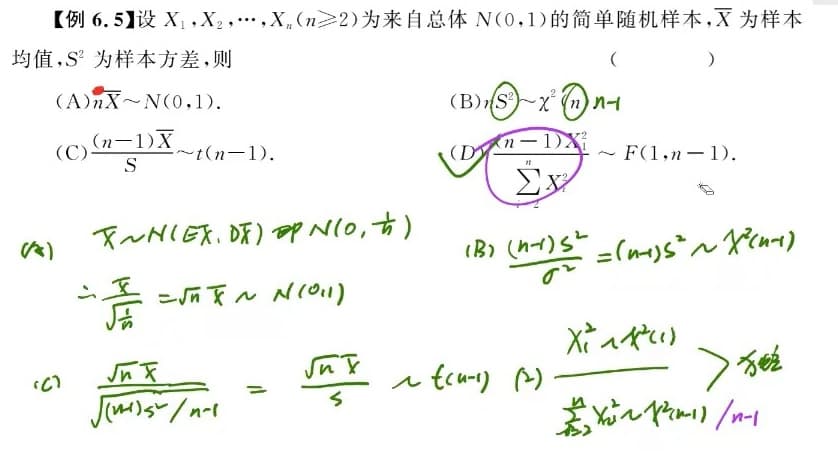 【例 6.5】设 X₁,X₂,⋯,Xₙ(n≥2)为来自总体 N(0,1)的简单随机样本,X̄ 为样本
均值,S² 为样本方差,则 ( )
(A)nX̄~N(0,1). (B)nS²~χ²(n) n-1
(C)(n-1)X̄/S~t(n-1). (D)(n-1)X₁²/∑ⁿᵢ₌₂Xᵢ² ~ F(1,n-1).
(A) X̄~N(EX̄, DX̄) 即 N(0, 1/n) (B) (n-1)S²/σ² = (n-1)S² ~ χ²(n-1)
∴ X̄/√(1/n) = √n X̄ ~ N(0,1)
(C) √n X̄/√((n-1)S²/n-1) = √n X̄/S ~ t(n-1) (2) X₁²~χ²(1)
∑ⁿᵢ₌₂Xᵢ²~χ²(n-1) /n-1